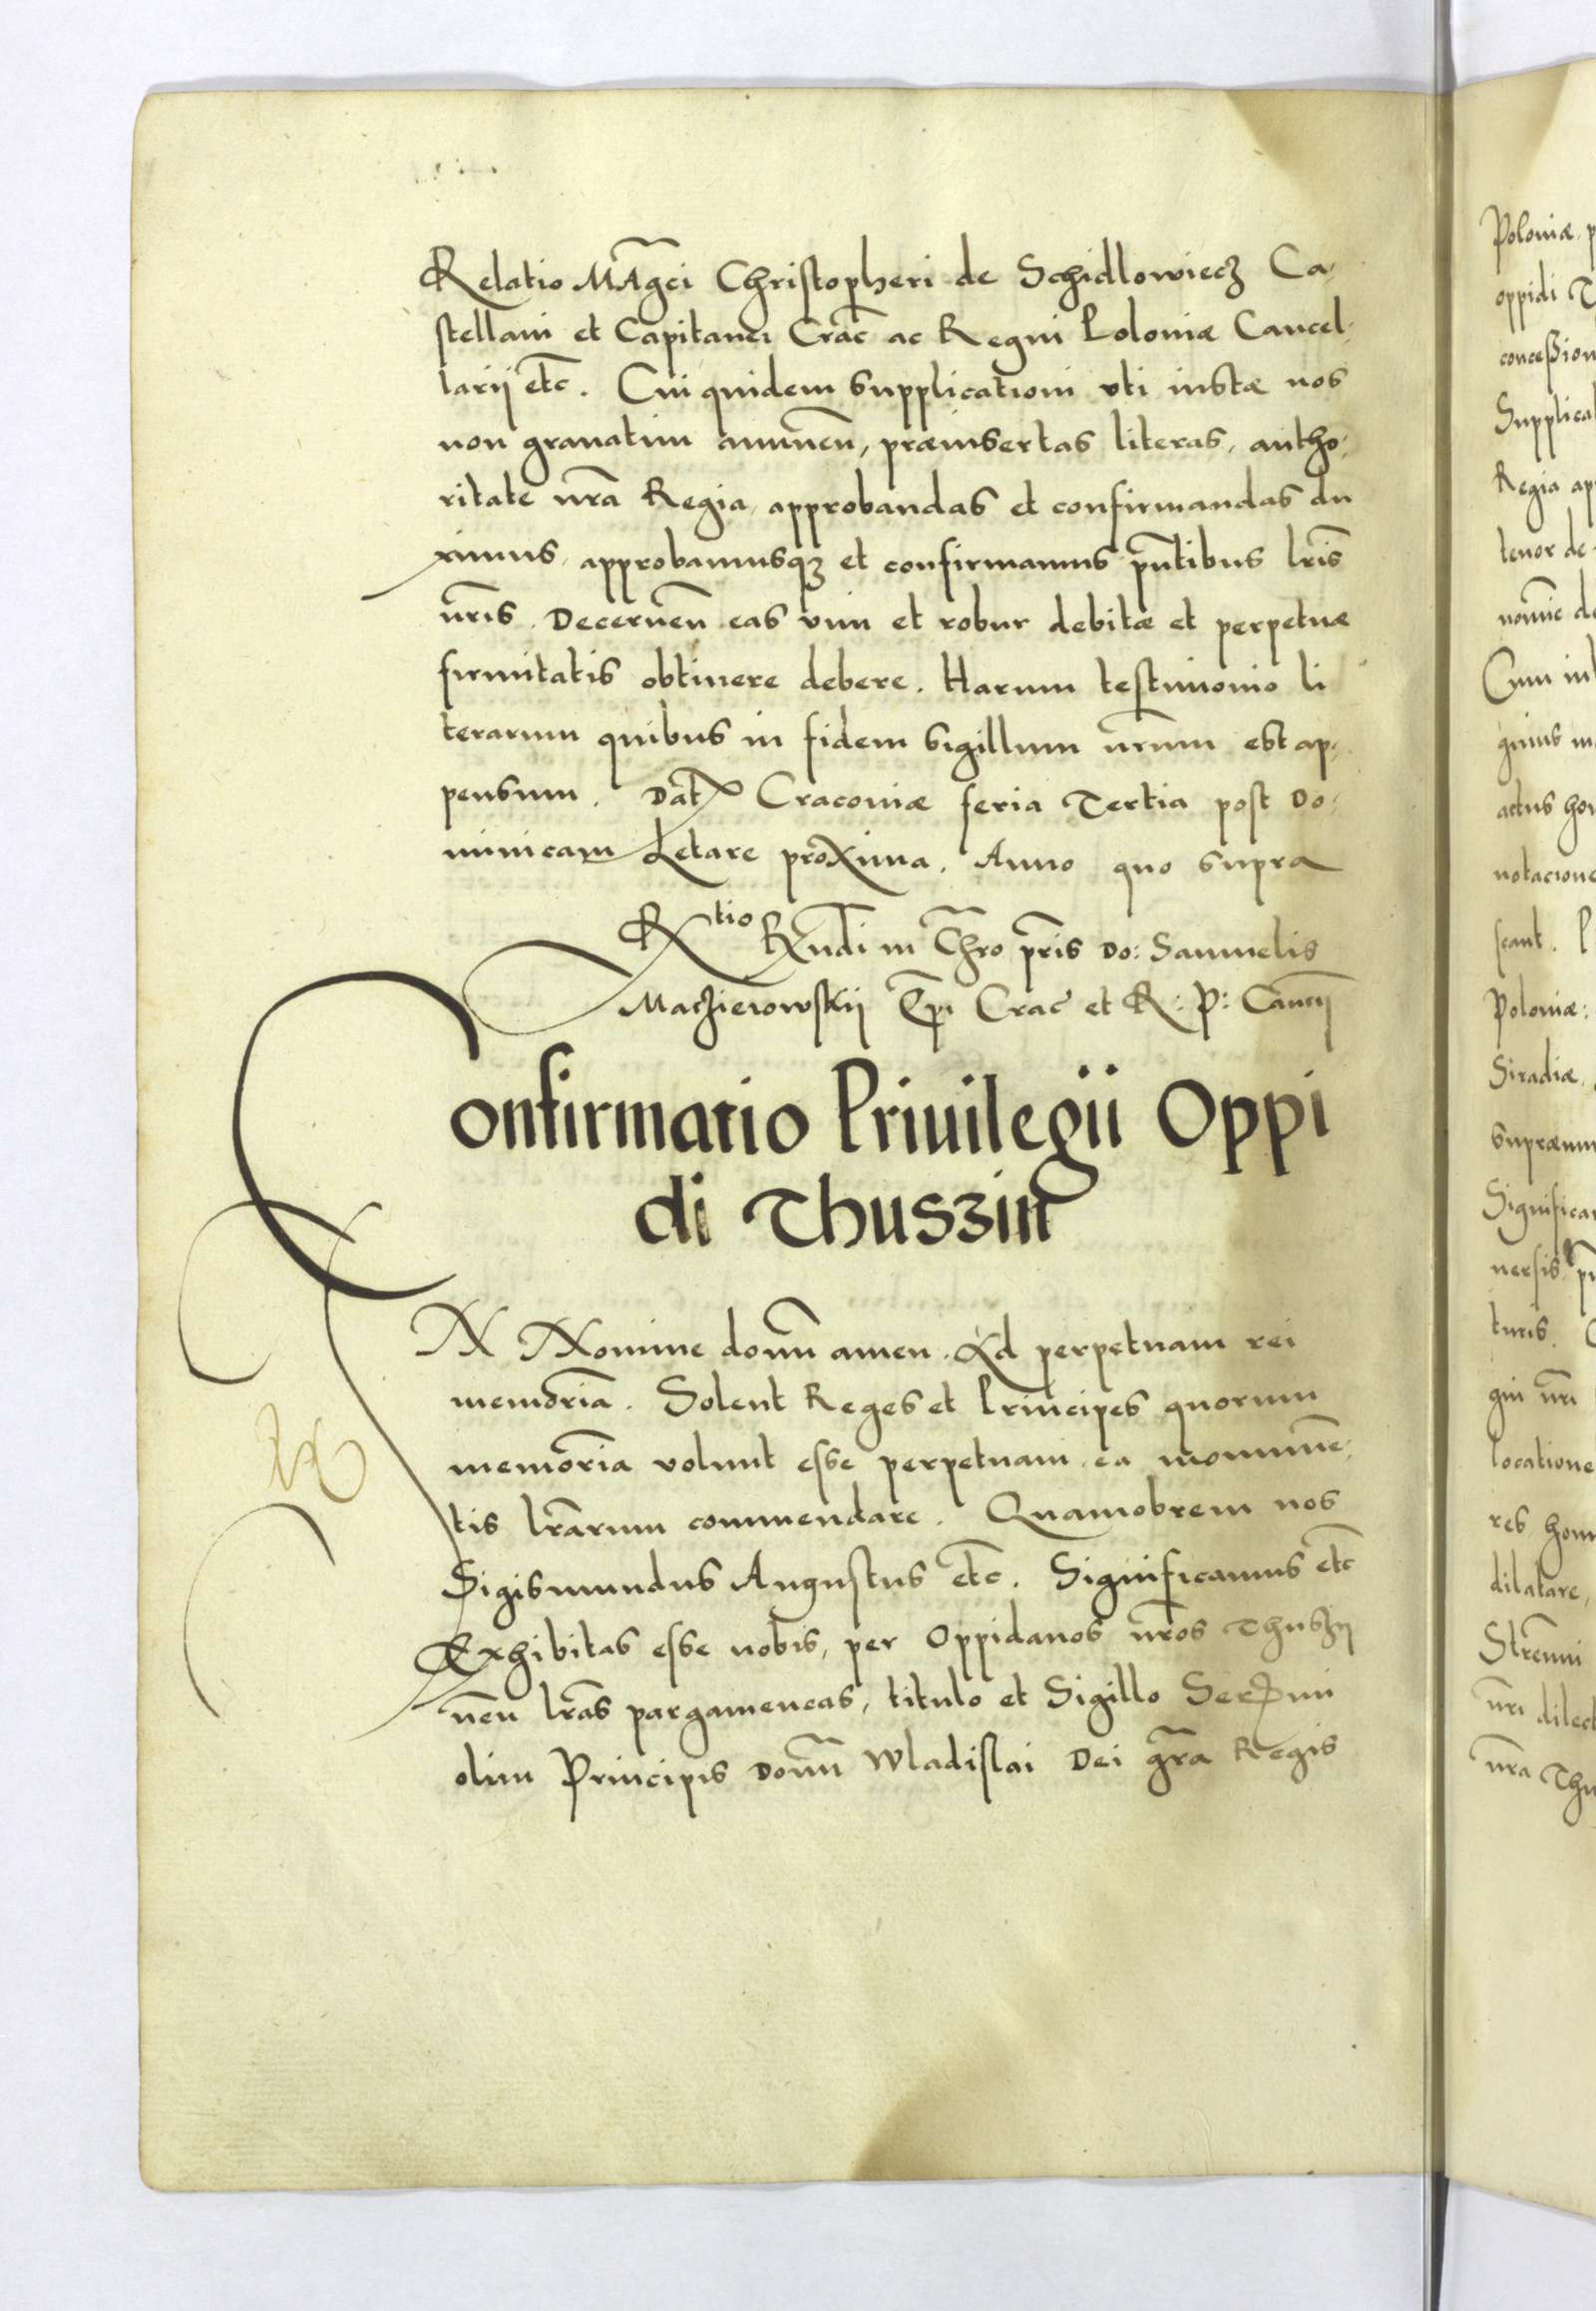 Relatio MAg̃ci Christopheri de Schidlowiecz Ca-
stellani et Capitanei Crac̃ ac Regni Poloniæ Cancel-
larij etc̃. Cui quidem supplicationi vti iustæ nos
non grauatim annueñ, præinsertas literas, autho-
ritate nrã Regia, approbandas et confirmandas du
ximus, approbamusqꝫ et confirmamus pñtibus lris̃
nris̃. Decerneñ eas vim et robur debitæ et perpetuæ
firmitatis obtinere debere. Harum testimonio li
terarum quibus in fidem sigillum nrũm est ap-
pensum. Dat̃ Craconiæ feria Tertia post Do-
minicam Letare proxima. Anno quo supra
Rtio Rñdi in Chrõ pris̃ Do: Samuelis
Maczieiowskij Ep̃i Crac̃ et R: P: Canc̃ij
Confirmatio Priuilegii Oppi
di Thuszin
IN Nomine domĩ amen. Ad perpetuam rei
memoriã. Solent Reges et Principes quorum
memoriã volunt esse perpetuam ea monumẽ-
tis lrãrum commendare. Quamobrem nos
Sigismundus Augustus etc̃. Significamus etc̃
Exhibitas esse nobis, per Oppidanos nrõs Thuszij
neñ lrãs pargameneas, titulo et Sigillo Serꝰmi
olim Principis Domĩ Wladislai Dei grã Regis
Poloniæ
oppidi
concession
Regia
tenor de
Cum
actus
Poloniæ:
Siradiæ
nri
locatione
res
dilatare,
Strẽnui
nri
nrã